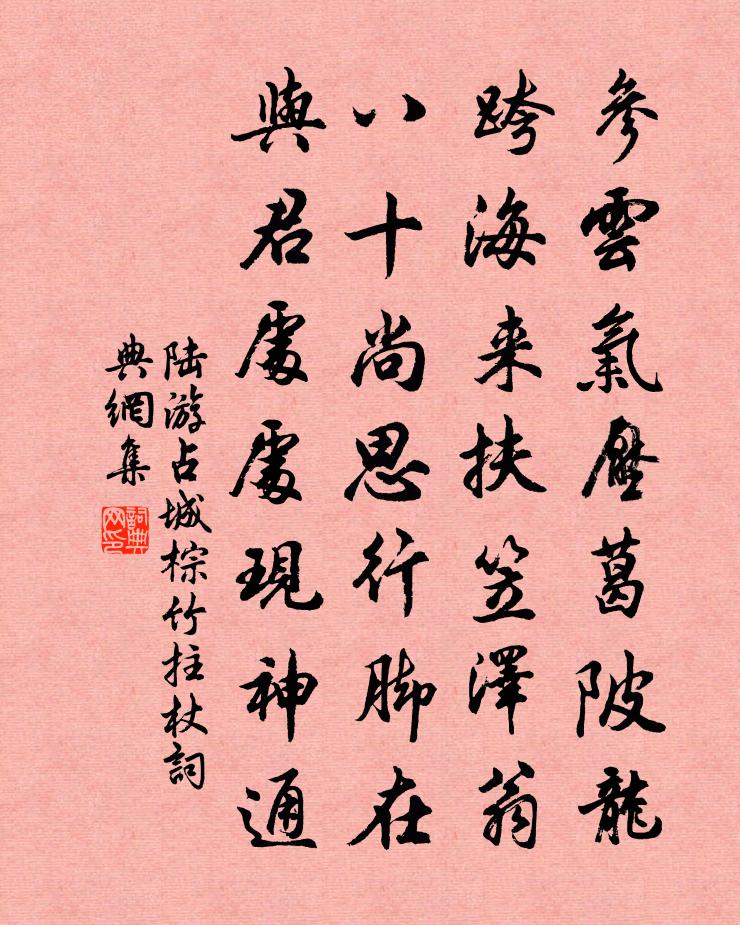 參雲氣壓葛陂龍
跨海来扶笠澤翁
八十尚思行脚在
與君處處現神通
陆游占城棕竹拄杖詞
典網集
詞典
网印